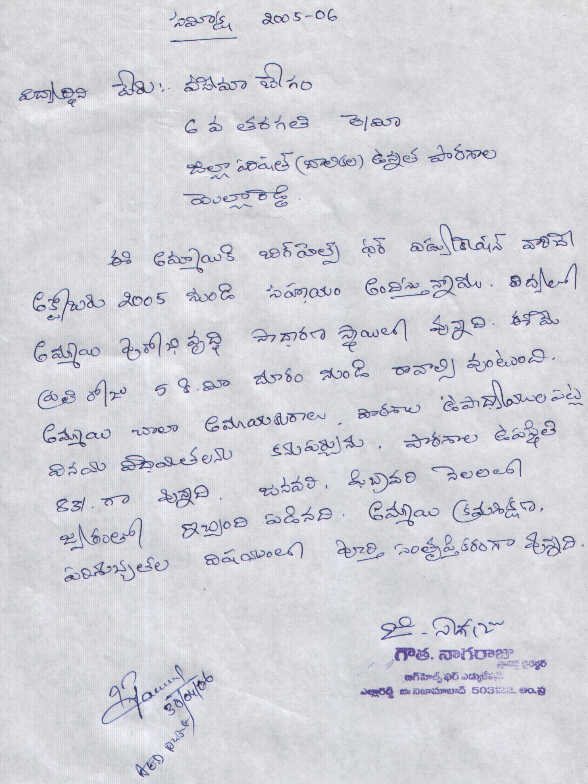 సమీక్ష 2005-06
విద్యార్థిని పేరు:- వసీమా బేగం
6 వ తరగతి
జిల్లా పరిషత్ (బాలికల) ఉన్నత పాఠశాల
యెల్లారెడ్డి.
ఈ అమ్మాయికి బిగ్ హెల్ప్ ఫర్ ఎడ్యుకేషన్ వారిచే
అక్టోబరు 2005 నుండి సహాయం అందిస్తున్నాము. విద్యలో
అమ్మాయి పురోభివృద్ధి సాధారణ స్థాయిలో వున్నది. ఈమె
ప్రతి రోజు 5 కి.మీ దూరం నుండి రావాల్సి వుంటుంది.
అమ్మాయి చాలా అమాయకురాలు. పాఠశాల ఉపాధ్యాయుల పట్ల
వినయ విధేయతలను కనుపర్చును. పాఠశాల ఉపస్థితి
83%. గా వున్నది. జనవరి, ఫిబ్రవరి నెలలలో
జ్వరంతో ఇబ్బంది పడినది. అమ్మాయి క్రమశిక్షణ,
పరిశుభ్రతల విషయంలో పూర్తి సంతృప్తికరంగా వున్నది.
జి. నాగరాజు
గౌత. నాగరాజు
బిగ్‌హెల్ప్ ఫర్ ఎడ్యుకేషన్
ఎల్లారెడ్డి జి. నిజామాబాద్ 503 ఆం.ప్ర
30/04/06